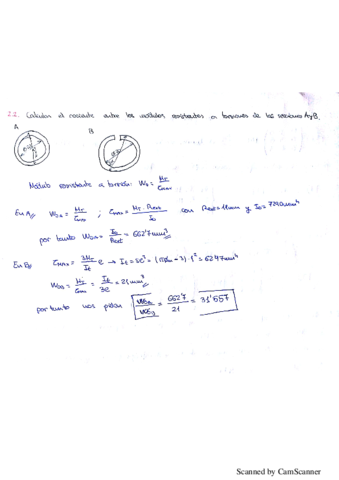 2.2. Calcular el cociente entre los módulos resistentes a torsiones de las secciones A y B.
A B
Módulo resistente a torsión: W₀ = Mτ/τmax
En A// W₀A = Mτ/τmax ; τmax = Mτ · Rext/I₀ con Rext = 11mm y I₀ = 7290mm⁴
por tanto W₀A = I₀/Rext = 662'7mm³
En B// τmax = 3Mτ/It e → It = Se³ = · 1³ = 62'47mm⁴
W₀B = Mτ/τmax = It/3e = 21mm³
por tanto nos piden W₀A/W₀B = 662'7/21 = 31'557
Scanned by CamScanner